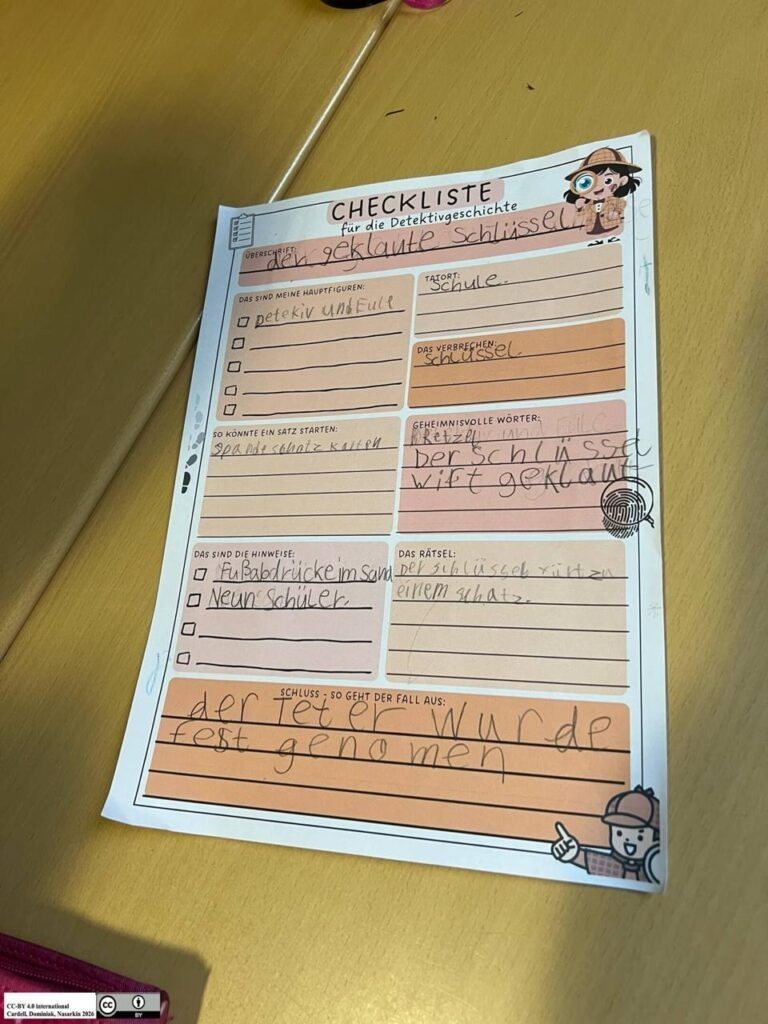 CHECKLISTE
für die Detektivgeschichte
ÜBERSCHRIFT:
der geklaute Schlüssel
DAS SIND MEINE HAUPTFIGUREN:
Detekiv und Eule
TATORT:
Schule.
DAS VERBRECHEN:
Schlüssel.
SO KÖNNTE EIN SATZ STARTEN:
GEHEIMNISVOLLE WÖRTER:
Retzel
Der Schlüssel
wirt geklaut
DAS SIND DIE HINWEISE:
Fußabdrücke im Sand
Neun Schüler.
DAS RÄTSEL:
Der schlüssel
einem schatz.
SCHLUSS - SO GEHT DER FALL AUS:
der Teter wurde
fest genomen
CC-BY 4.0 international
Cardell, Dominiak, Nasarkin 2026
CC BY